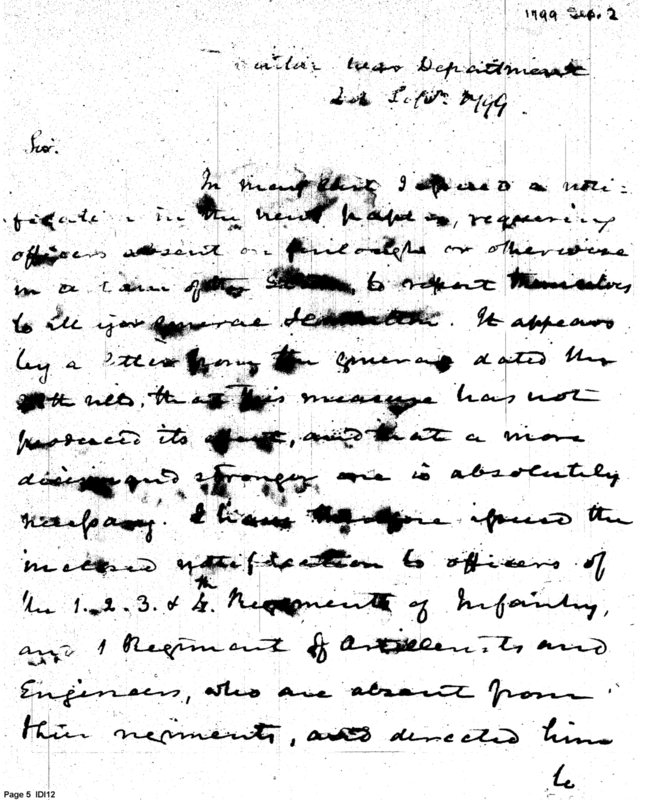 1799 Sep. 2
War Department
2d Sepr. 1799.
Sir.
In May last I issued a noti-
fication in the news papers, requiring
officers absent on furlough or otherwise
in a to report themselves
to Major general Hamilton. It appears
by a letter from the general dated the
ulto, that this measure has not
produced its effect, and that a more
decisive and stronger one is absolutely
necessary. I have therefore issued the
inclosed notification to officers of
the 1. 2. 3. & 4th. Regiments of Infantry,
and 1 Regiment of Artillerists and
Engineers, who are absent from
their regiments, and directed him
to
Page 5 IDI12